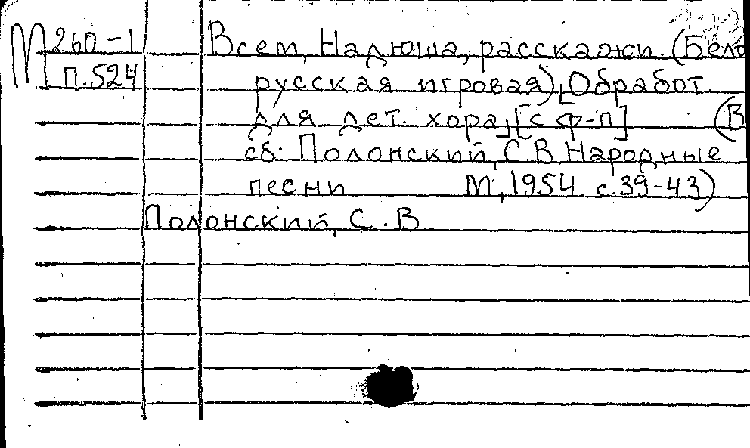 М 260-1 Всем, Надюша, расскажи. (Бело
п.524 русская игровая) [Обработ.
для дет. хора] [с ф-п] (В
сб: Полонский, С.В. Народные
песни М, 1954 с.39-43)
Полонский, С.В.